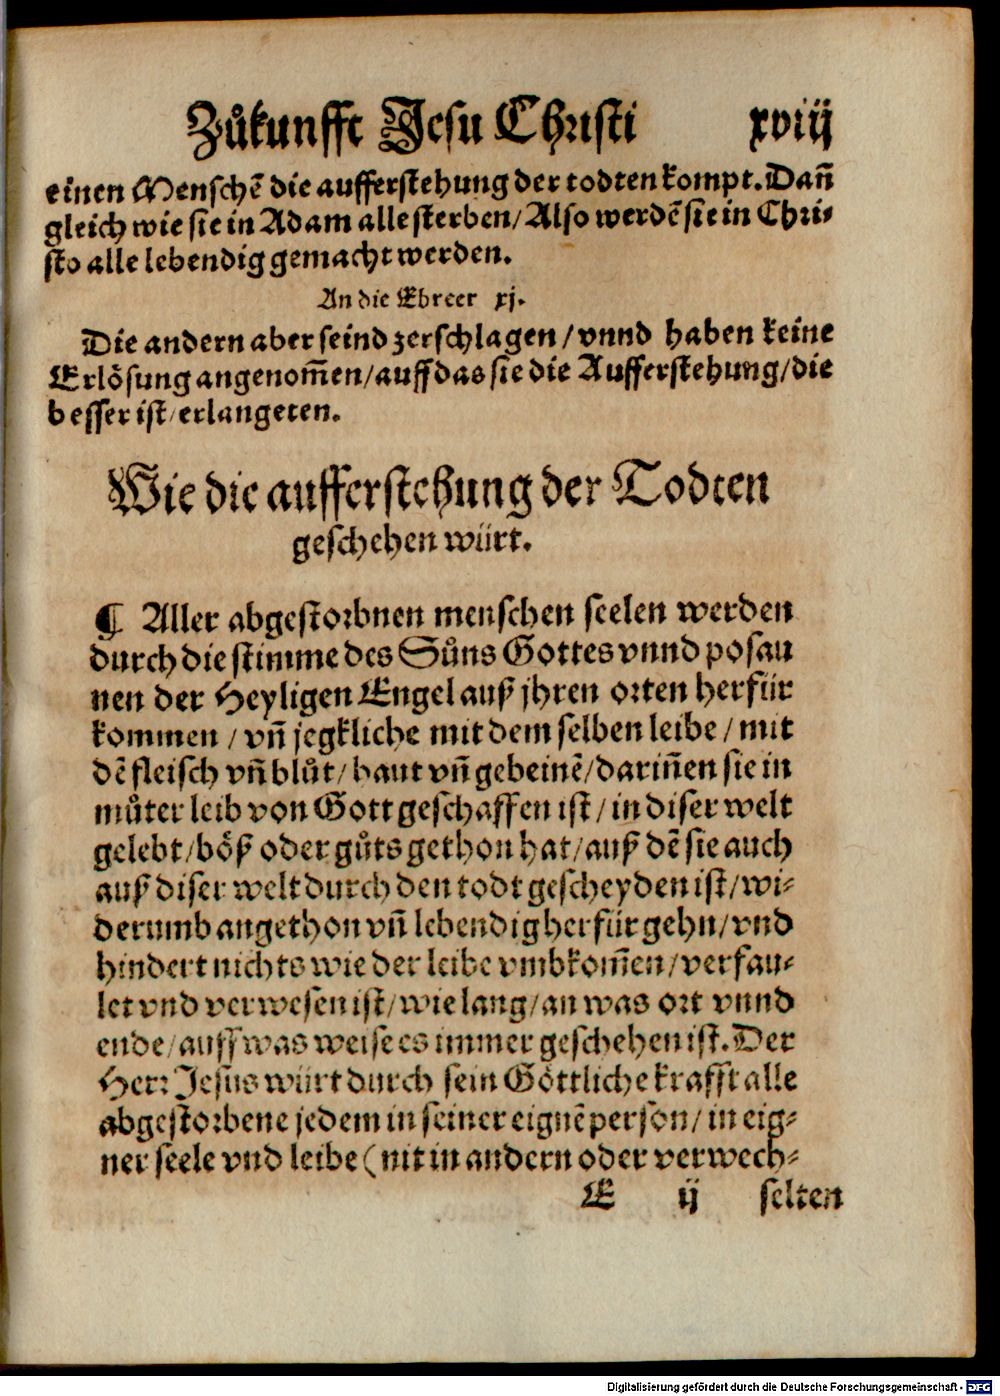 Zůkunfft Jesu Christi xviij
einen Menschē die aufferstehung der todten kompt. Dañ
gleich wie sie in Adam alle sterben/ Also werdē sie in Chri-
sto alle lebendig gemacht werden.
An die Ebreer xj.
Die andern aber seind zerschlagen/ vnnd haben keine
Erlösung angenom̃en/ auff das sie die Aufferstehung/ die
besser ist/ erlangeten.
Wie die aufferstehung der Todten
geschehen würt.
¶ Aller abgestorbnen menschen seelen werden
durch die stimme des Sůns Gottes vnnd posau
nen der Heyligen Engel auß jhren orten herfür
kommen/ vñ jegkliche mit dem selben leibe/ mit
dē fleisch vñ blůt/ haut vñ gebeinē/ dariñen sie in
můter leib von Gott geschaffen ist/ in diser welt
gelebt/ böß oder gůts gethon hat/ auß dē sie auch
auß diser welt durch den todt gescheyden ist/ wi-
derumb angethon vñ lebendig herfür gehn/ vnd
hindert nichts wie der leibe vmbkom̃en/ verfau-
let vnd verwesen ist/ wie lang/ an was ort vnnd
ende/ auff was weise es immer geschehen ist. Der
Herr Jesus würt durch sein Göttliche krafft alle
abgestorbene jedem in seiner eignē person/ in eig-
ner seele vnd leibe (nit in andern oder verwech-
E ij selten
Digitalisierung gefördert durch die Deutsche Forschungsgemeinschaft - DFG